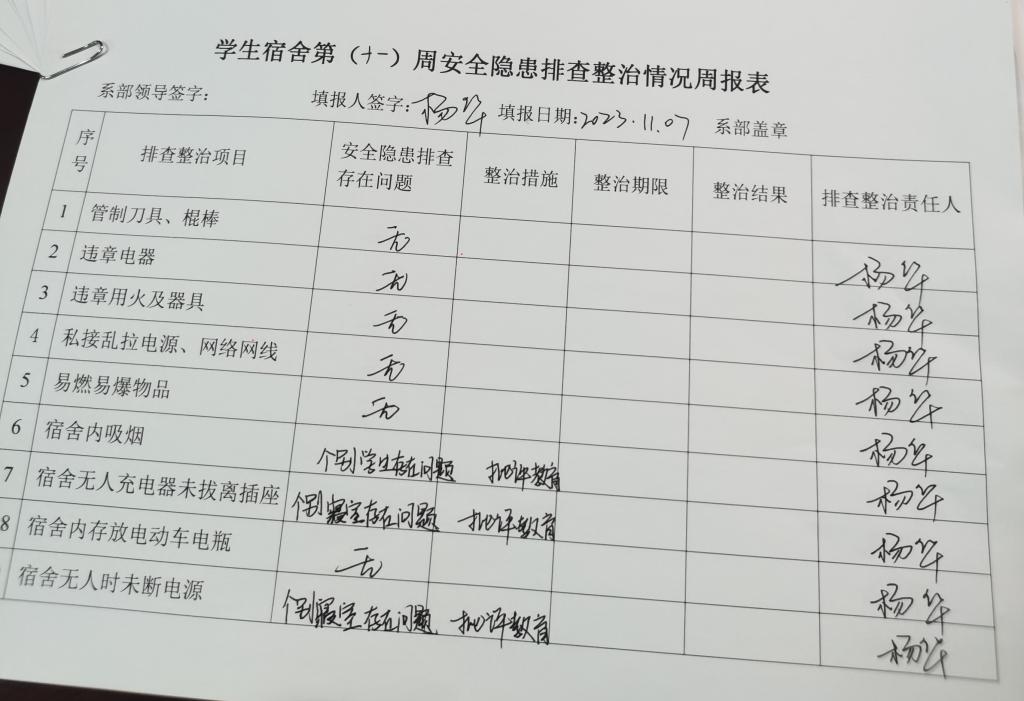 学生宿舍第（十一）周安全隐患排查整治情况周报表
系部领导签字： 填报人签字：杨华 填报日期：2023.11.07 系部盖章
序号 排查整治项目 安全隐患排查存在问题 整治措施 整治期限 整治结果 排查整治责任人
1 管制刀具、棍棒 无 杨华
2 违章电器 无 杨华
3 违章用火及器具 无 杨华
4 私接乱拉电源、网络网线 无 杨华
5 易燃易爆物品 无 杨华
6 宿舍内吸烟 个别学生存在问题 批评教育 杨华
7 宿舍无人充电器未拔离插座 个别寝室存在问题 批评教育 杨华
8 宿舍内存放电动车电瓶 无 杨华
宿舍无人时未断电源 个别寝室存在问题 批评教育 杨华